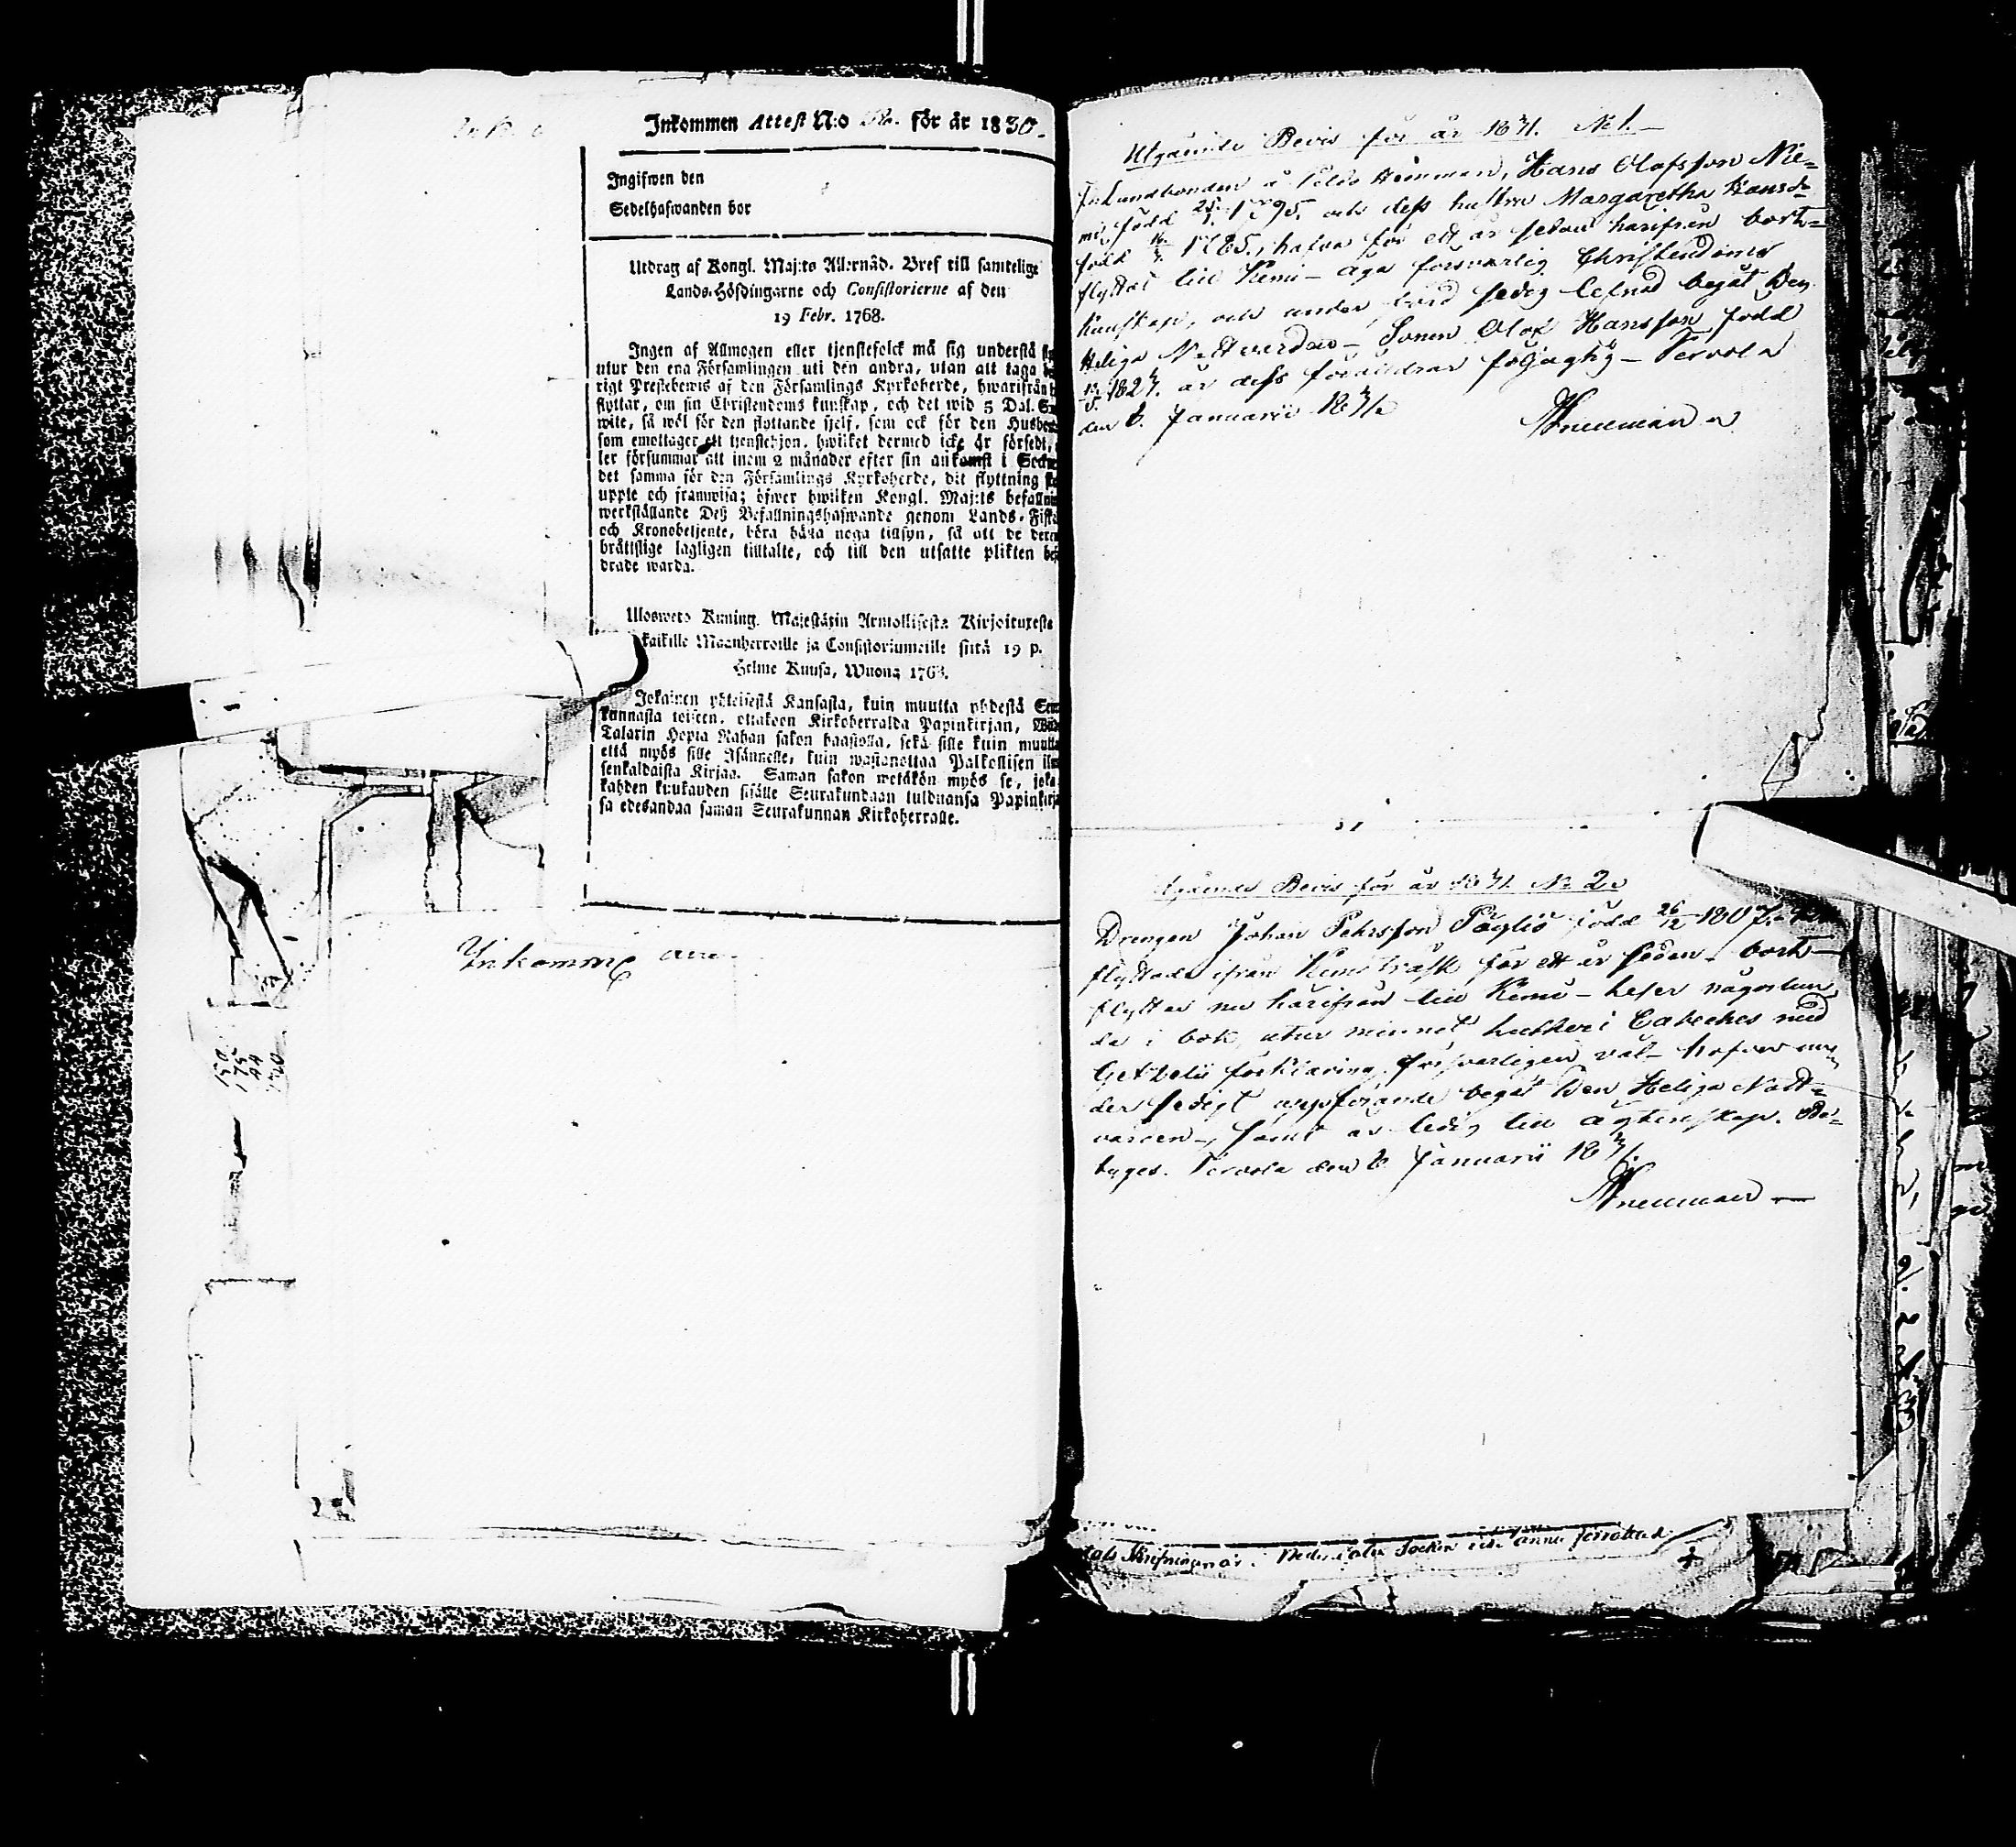 Inkommen Attest N:o för år 1830.
Ingifwen den
Sedelhafwanden bor
Utdrag af Kongl. Maj:ts Allernåd. Bref till samtelige
Lands-Höfdingarne och Consistorierne af den
19 Febr. 1768.
Ingen af Allmogen eller tjenstefolck må sig understå
utur den ena Församlingen uti den andra, utan att taga
rigt Prestebewis af den Församlings Kyrkoherde, hwarifrån
flyttar, om sin Christendoms kunskap, och det wid 5 Dal. S
wite, så wöl för den flyttande sjelf, som ock för den Husbon
som emottager ett tjenstehjon, hwilket dermed icke är försedt,
ler försummar att inom 2 månader efter sin ankomst i Sock
det samma för den Församlings Kyrkoherde, dit flyttning
uppte och framwisa; öfwer hwilken Kongl. Maj:ts befallni
werkställande Deß Befallningshafwande genom Lands-Fiska
och Kronobetjente, böra hålla noga tillsyn, så att de der
bråttslige lagligen tilltalte, och till den utsatte plikten be
drade warda.
Ulosweto Kuning. Majestätin Armollisesta Kirjoituxesta
kaikille Maanherroille ja Consistoriumeille siitä 19 p.
Helme Kuusa, Wuona 1768.
Jokainen yhteisestä Kansasta, kuin muutta yhdestä Seu
kunnasta toiseen, ottakoon Kirkoherralda Papinkirjan,
Talarin Hopia Rahan sakon haastolla, sekä sille kuin muutta
että myös sille Isännelle, kuin wastanottaa Palkollisen il
senkaldaista Kirjaa. Saman sakon wetäkön myös se, joka
kahden kuukauden sisälle Seurakundaan tulduansa Papinkirja
sa edesandaa saman Seurakunnan Kirkoherralle.
Inkomne
150
175
44
Utgående Bevis för år 1831. No 1.
Landbonden å Hemman, Hans Olofsson Nie-
mi, född 25/1 1795. och dess hustru Margaretha Hansdr
född 1785, hafva för ett år sedan härifrån bort-
flyttat till Kemi - äga försvarlig Christendoms
kunskap, och under sedig lefnad begåt Den
Heliga Nattvarden - Sonen Olof Hansson född
1827. är dess föräldrar följagtig - Tervola
den 6 Januarii 1831
Utgående Bevis för år 1831. No 2.
Drengen Johan Pehrsson född 26/12 1807.
flyttade ifrån Kemiträsk för ett år sedan - bort-
flyttar nu härifrån till Kemi - läser någorlun
da i bok, utur minnet Lutheri Cateches med
förklaring försvarligen väl - hafver un
der sedigt uppförande begåt Den Heliga Natt-
varden, samt är ledig till ägtenskap. Be-
tyges. Tervola den 6 Januarii 1831.